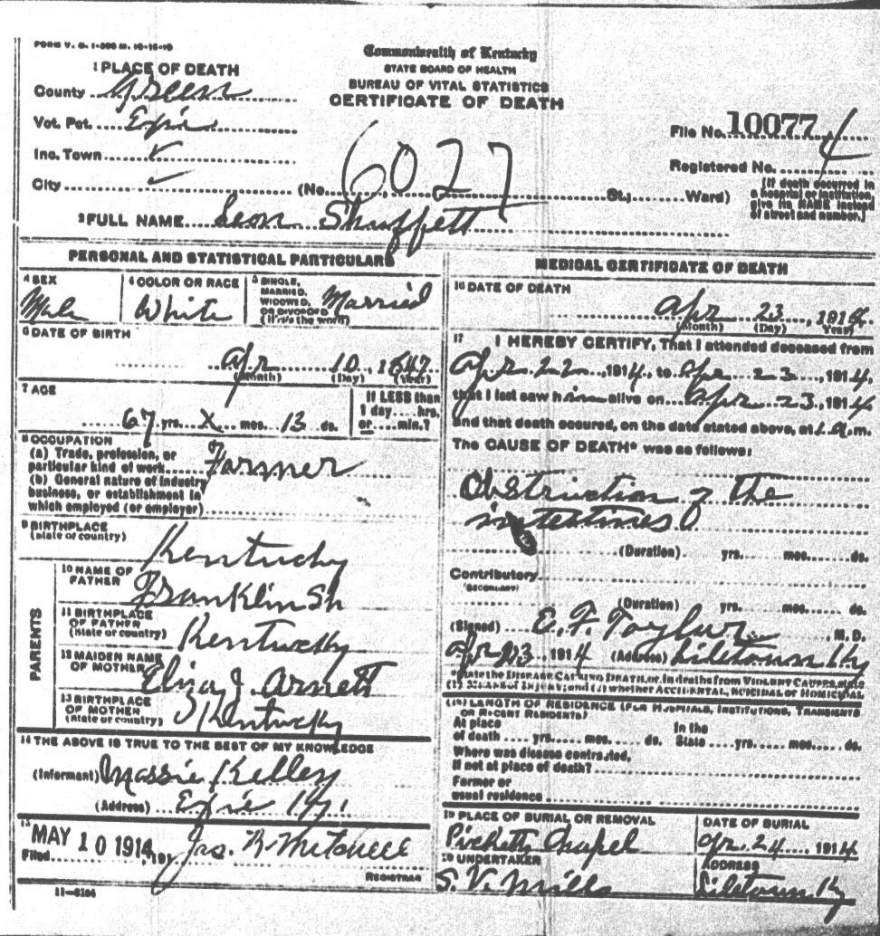 FORM V. S. 1-
Commonwealth of Kentucky
STATE BOARD OF HEALTH
BUREAU OF VITAL STATISTICS
CERTIFICATE OF DEATH
1 PLACE OF DEATH
County Green
Vot. Pct. Exie
Inc. Town ✓
City ✓
(No. 6027 St.; Ward)
File No. 10077
Registered No. 4
[If death occurred in a hospital or institution, give its NAME instead of street and number.]
2 FULL NAME Leon Shuffett
PERSONAL AND STATISTICAL PARTICULARS
3 SEX
Male
4 COLOR OR RACE
White
5 SINGLE, MARRIED, WIDOWED, OR DIVORCED (Write the word)
Married
6 DATE OF BIRTH
Apr 10, 1847
(Month) (Day) (Year)
7 AGE
67 yrs. X mos. 13 ds.
If LESS than 1 day.... hrs. or.... min.?
8 OCCUPATION
(a) Trade, profession, or particular kind of work Farmer
(b) General nature of industry business, or establishment in which employed (or employer)
9 BIRTHPLACE (State or country)
Kentucky
PARENTS
10 NAME OF FATHER
Franklin Sh
11 BIRTHPLACE OF FATHER (State or country)
Kentucky
12 MAIDEN NAME OF MOTHER
Eliza J. Arnett
13 BIRTHPLACE OF MOTHER (State or country)
Kentucky
14 THE ABOVE IS TRUE TO THE BEST OF MY KNOWLEDGE
(Informant) Massie Kelley
(Address) Exie Ky.
15
Filed MAY 10 1914, 191 Jas. R. Mitchell
REGISTRAR
11-
MEDICAL CERTIFICATE OF DEATH
16 DATE OF DEATH
Apr 23, 1914
(Month) (Day) (Year)
17 I HEREBY CERTIFY, That I attended deceased from
Apr 22, 1914, to Apr 23, 1914,
that I last saw him alive on Apr 23, 1914
and that death occured, on the date stated above, at 1 a.m.
The CAUSE OF DEATH* was as follows:
Obstruction of the
intestines
(Duration) yrs. mos. ds.
Contributory
(SECONDARY)
(Duration) yrs. mos. ds.
(Signed) E. F. Taylor M. D.
Apr 23, 1914 (Address) Liletown Ky
*State the DISEASE CAUSING DEATH, or, in deaths from VIOLENT CAUSES, state
(1) MEANS of INJURY; and (2) whether ACCIDENTAL, SUICIDAL or HOMICIDAL
(18) LENGTH OF RESIDENCE (FOR HOSPITALS, INSTITUTIONS, TRANSIENTS
OR RECENT RESIDENTS)
At place of death .... yrs. .... mos. .... ds. In the State .... yrs. .... mos. .... ds.
Where was disease contracted,
if not at place of death?
Former or
usual residence
19 PLACE OF BURIAL OR REMOVAL
Picketts Chapel
DATE OF BURIAL
Apr. 24 1914
20 UNDERTAKER
S. V. Mills
ADDRESS
Liletown Ky